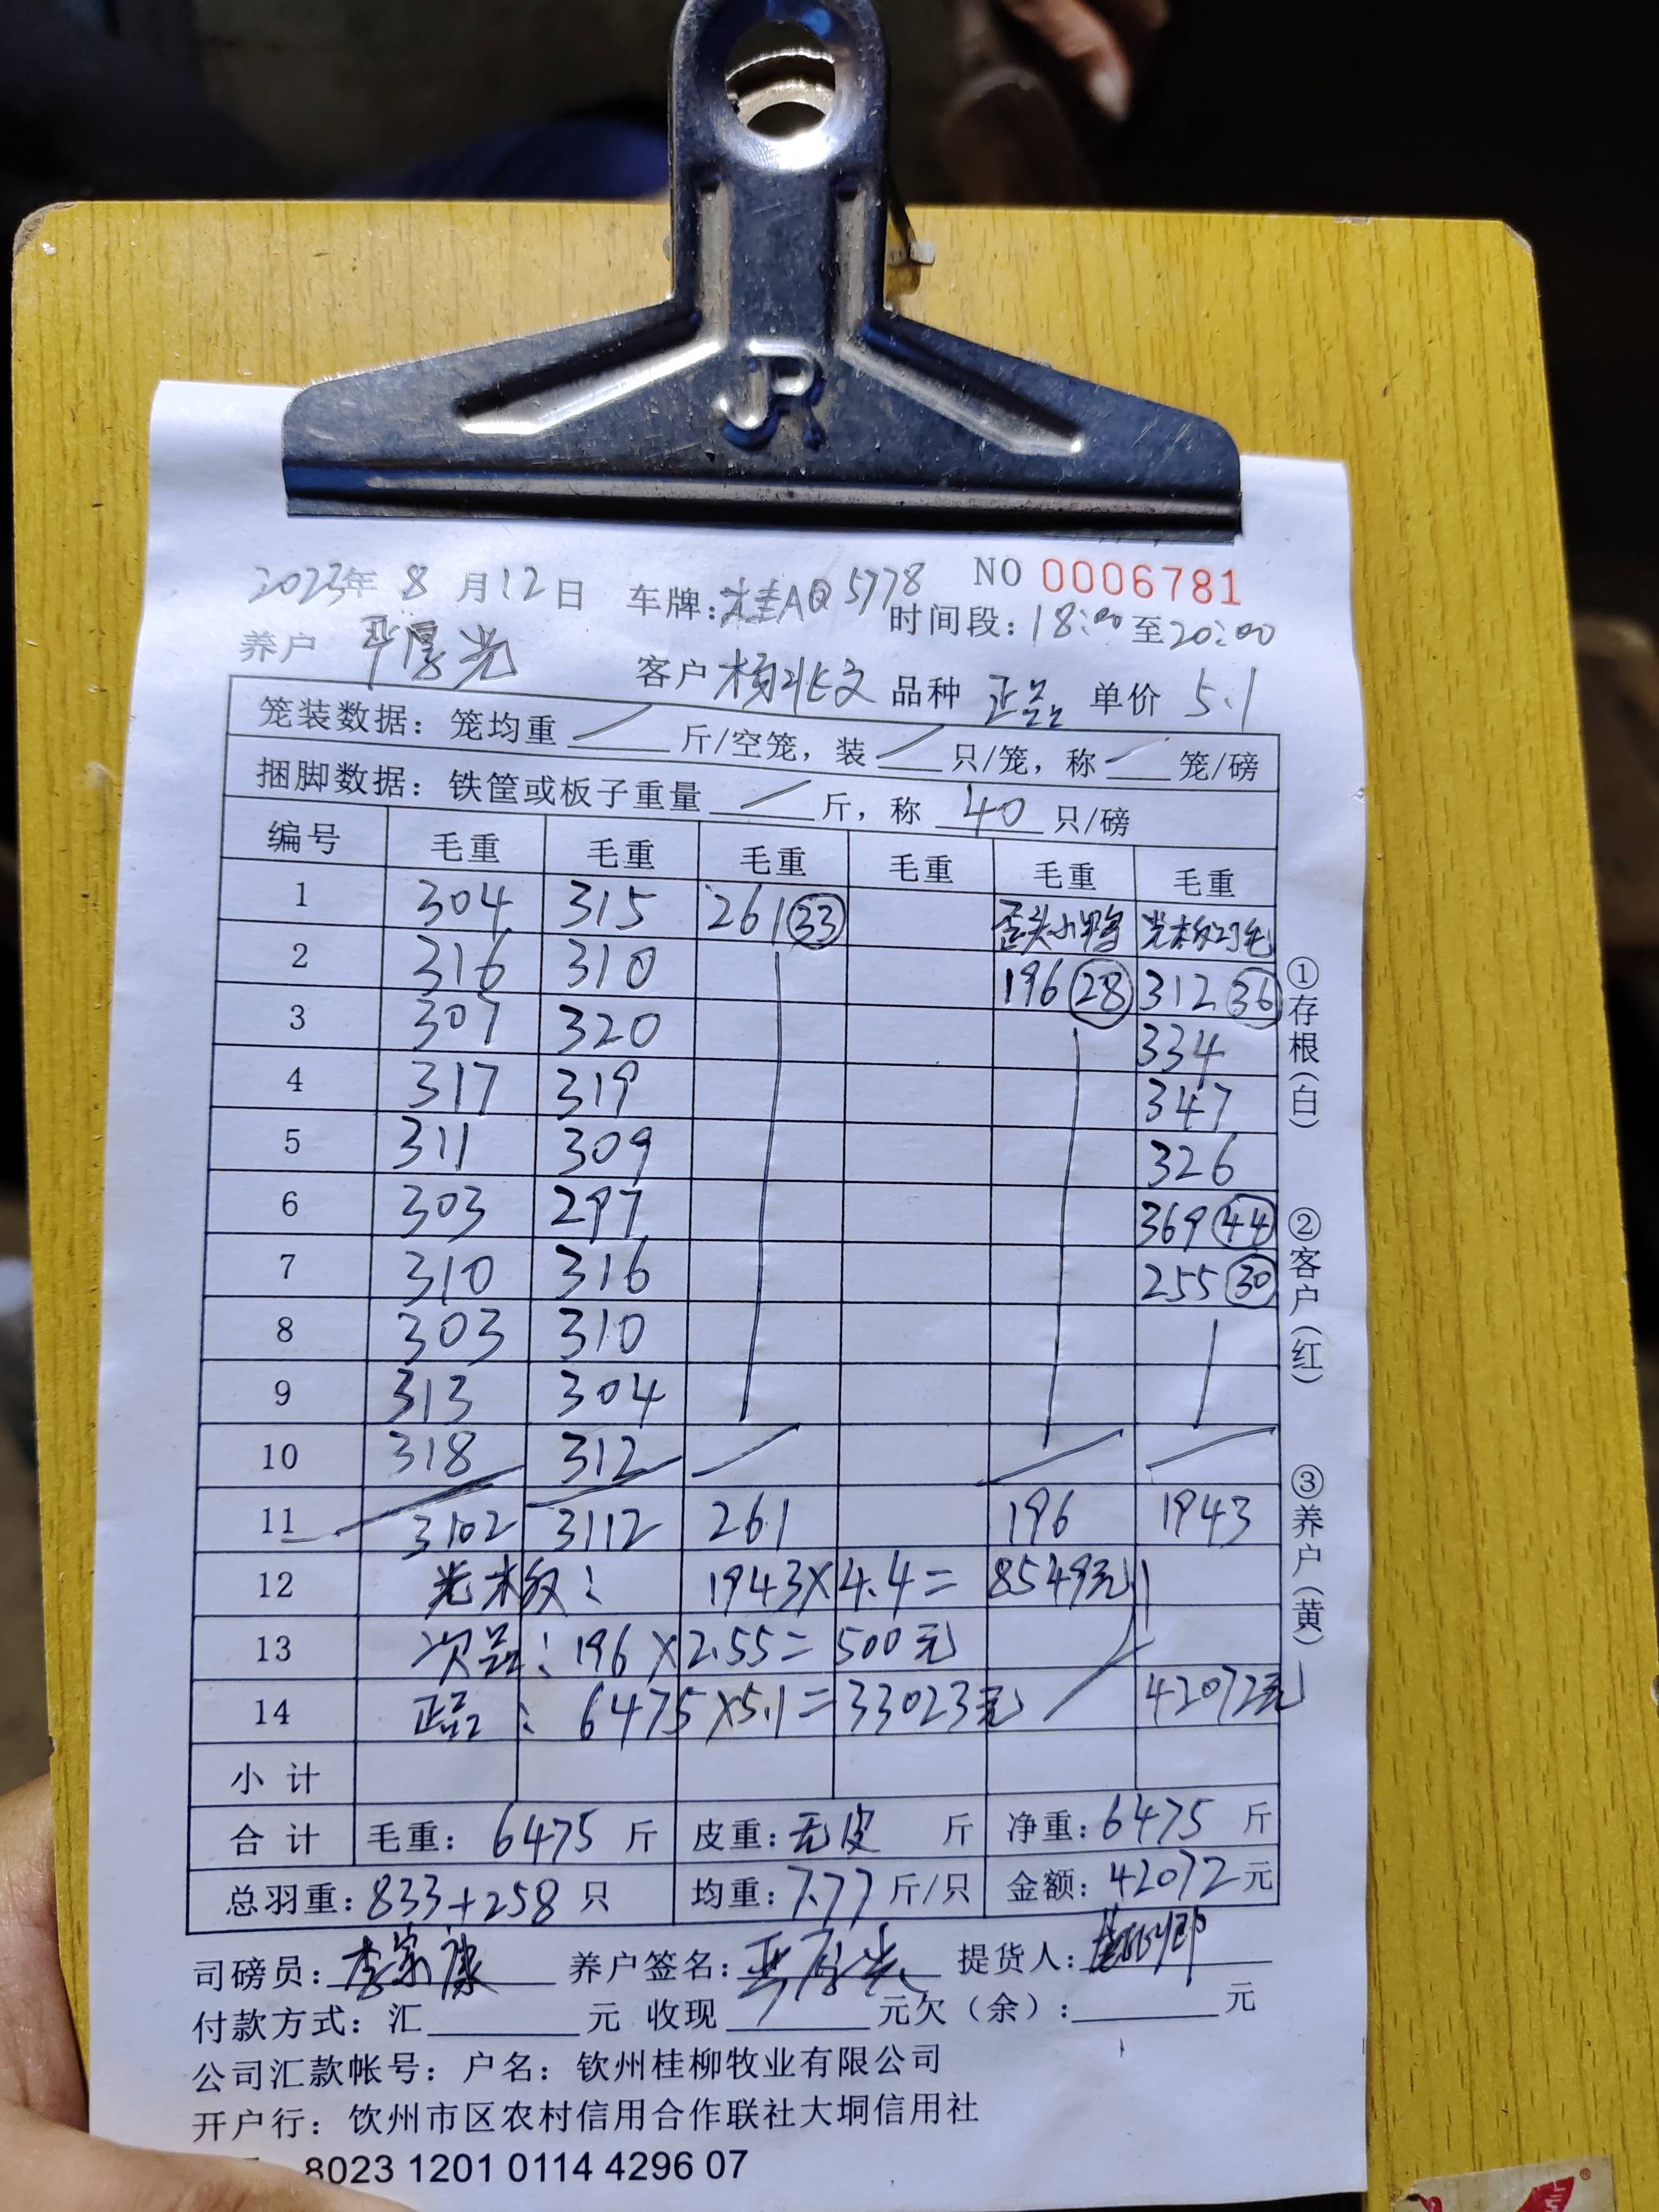 JR
NO 0006781
2023年 8 月 12 日 车牌: 桂AQ5778
时间段: 18:00 至 20:00
养户 厚光 客户 杨兆文 品种 正品 单价 5.1
笼装数据: 笼均重 斤/空笼, 装 只/笼, 称 笼/磅
捆脚数据: 铁筐或板子重量 斤, 称 40 只/磅
编号 毛重 毛重 毛重 毛重 毛重 毛重
1 304 315 261 33 歪头小鸭 光板
2 316 310 196 28 312 36
3 307 320 334
4 317 319 347
5 311 309 326
6 303 297 369 44
7 310 316 255 30
8 303 310
9 313 304
10 318 312
11 3102 3112 261 196 1943
12 光板: 1943×4.4= 8549元
13 次品: 196×2.55= 500元
14 正品: 6475×5.1=33023元 42072元
小计
合计 毛重: 6475 斤 皮重: 无皮 斤 净重: 6475 斤
总羽重: 833+258 只 均重: 7.77 斤/只 金额: 42072 元
司磅员: 李家康 养户签名: 厚光 提货人:
付款方式: 汇 元 收现 元欠(余): 元
公司汇款帐号: 户名: 钦州桂柳牧业有限公司
开户行: 钦州市区农村信用合作联社大垌信用社
8023 1201 0114 4296 07
①存根(白)
②客户(红)
③养户(黄)